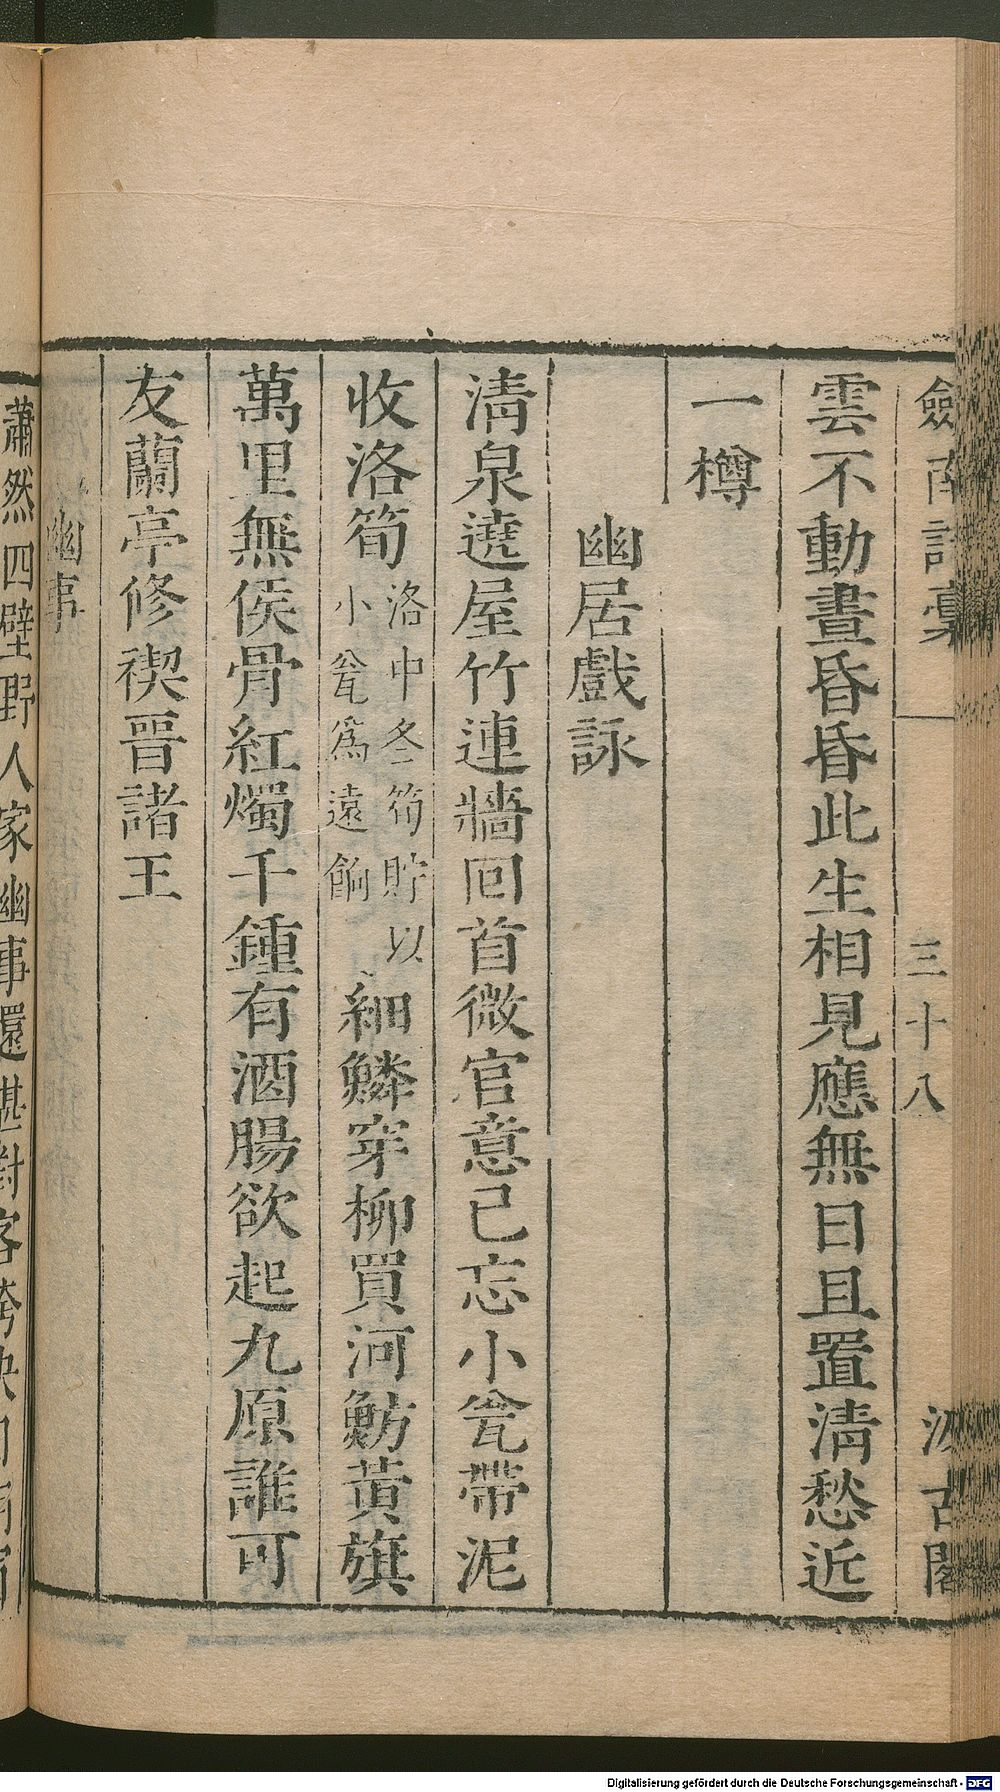 劍南詩稾
三十八
汲古閣
雲不動晝昏昏此生相見應無日且置清愁近
一樽
幽居戲詠
清泉遶屋竹連牆回首微官意已忘小瓮帶泥
收洛筍洛中冬筍貯以小瓮爲遠餉細鱗穿柳買河魴黃旗
萬里無侯骨紅燭千鍾有酒腸欲起九原誰可
友蘭亭修禊晋諸王
幽事
蕭然四壁野人家幽事還堪對客誇
Digitalisierung gefördert durch die Deutsche Forschungsgemeinschaft - DFG